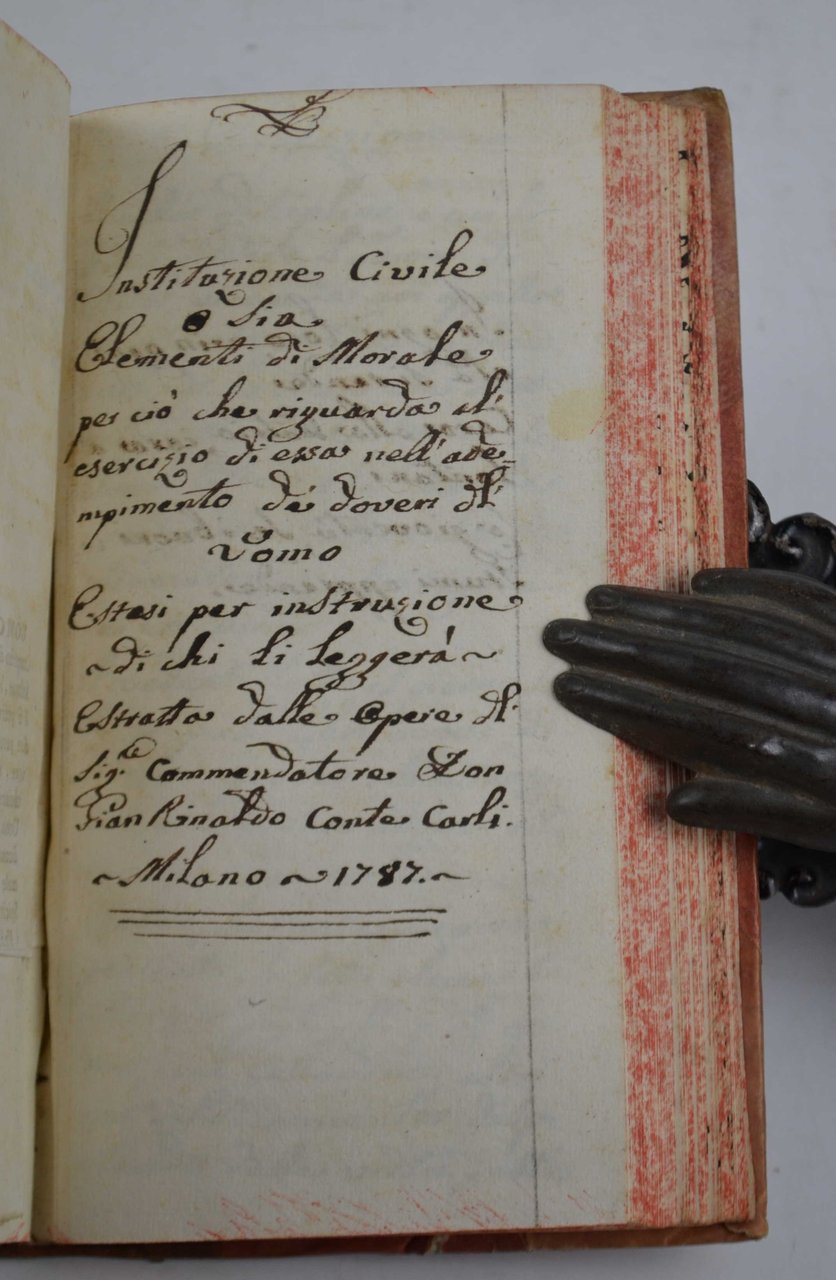 Instituzione Civile
o sia
Elementi di Morale
per ciò che riguarda al'
esercizio di essa nell' ade-
mpimento de' doveri dl'
Uomo
Estesi per instruzione
~ di chi li leggerà ~
Estratta dalle Opere dl'
Sig.re Commendatore Don
Gian Rinaldo Conte Carli.
~ Milano ~ 1787. ~